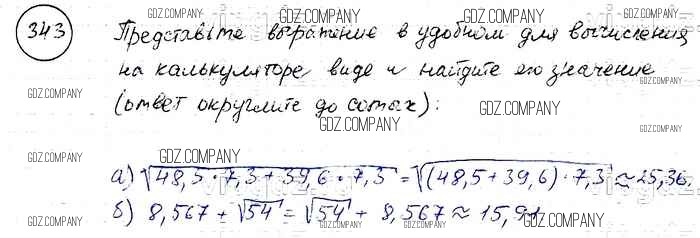 343
Представьте выражение в удобном для вычисления
на калькуляторе виде и найдите его значение
(ответ округлите до сотых):
а) √48,5·7,3+39,6·7,3 = √(48,5+39,6)·7,3 ≈ 25,36.
б) 8,567 + √54 = √54 + 8,567 ≈ 15,91
GDZ.COMPANY
GDZ.COMPANY
GDZ.COMPANY
GDZ.COMPANY
GDZ.COMPANY
GDZ.COMPANY
GDZ.COMPANY
GDZ.COMPANY
GDZ.COMPANY
GDZ.COMPANY
GDZ.COMPANY
GDZ.COMPANY
GDZ.COMPANY
GDZ.COMPANY